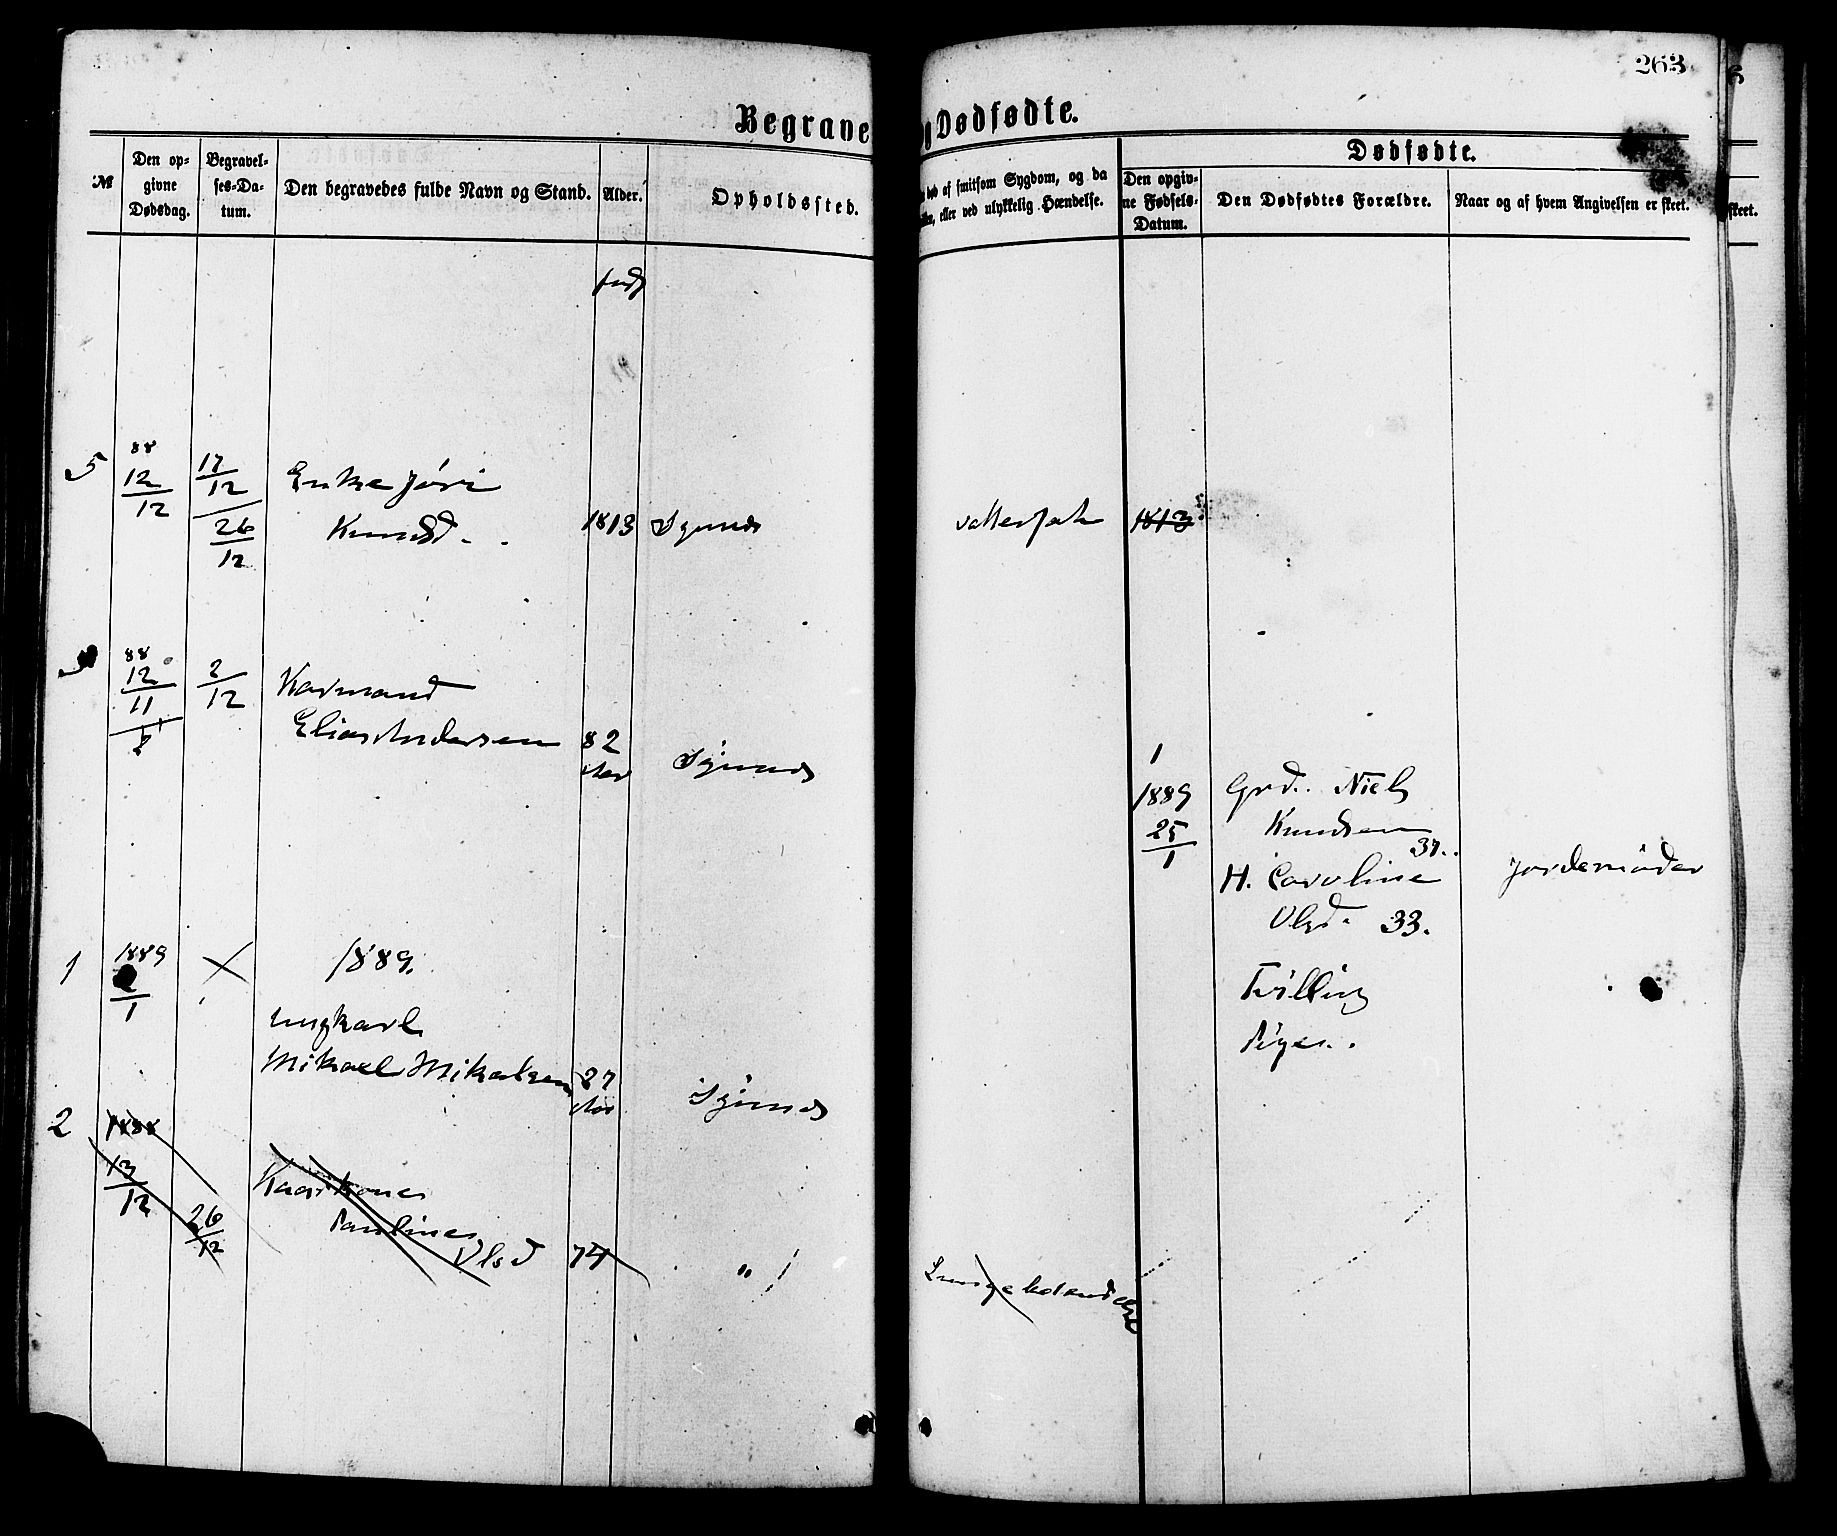 263
Begrave
Dødfødte.
M
Den op=
givne
Dødsdag.
Begravel=
ses=Da=
tum.
Den begravedes fulde Navn og Stand.
Alder.
Opholdssted.
død af smitsom Sygdom, og da
eller ved ulykkelig Hændelse.
Dødfødte.
Den opgiv=
ne Fødsels=
Datum.
Den Dødfødtes Forældre.
Naar og af hvem Angivelsen er skeet.
skeet.
5
88
12/12
17/12
26/12
Enke Jöri
Knudsd.
1813
1813
88
12/11
2/12
Kaarmand
Elias Andersen
82
Aar
1
1889
25/1
Grd. Niels
Knudsen
37.
H. Caroline
Olsd. 33.
Jordemöder
Tvilling
Piger.
1
1889
2/1
1889.
ungkarl
Mikael Mikalsen
27
Aar
2
1888
13/12
26/12
Kaarkone
Pauline
Olsd
74
"